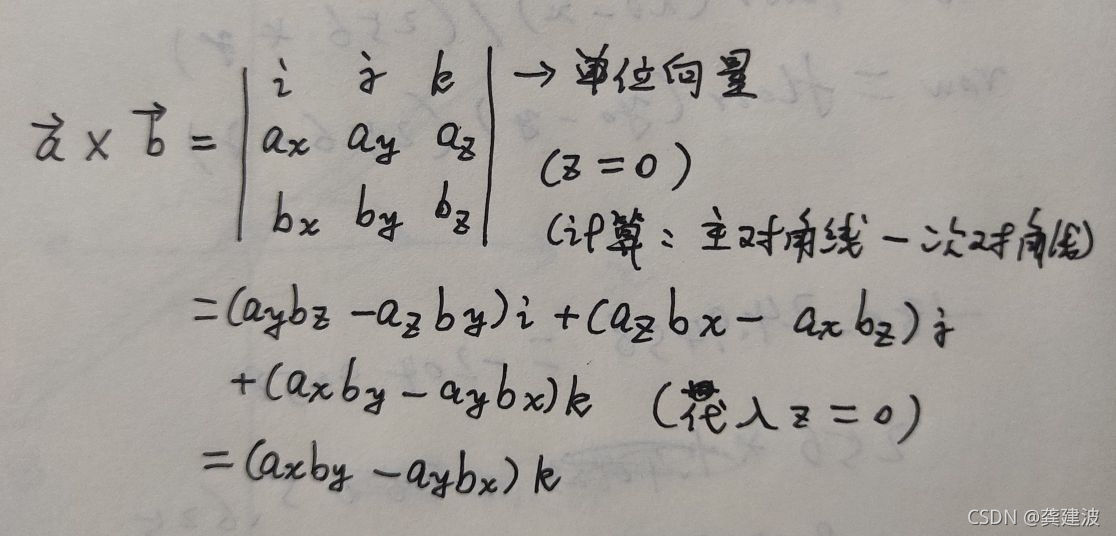 i j k → 单位向量
a⃗ × b⃗ = | ax ay az | (z = 0)
bx by bz (计算：主对角线 - 次对角线)
= (aybz - azby)i + (azbx - axbz)j
+ (axby - aybx)k (代入 z = 0)
= (axby - aybx)k
CSDN @龚建波